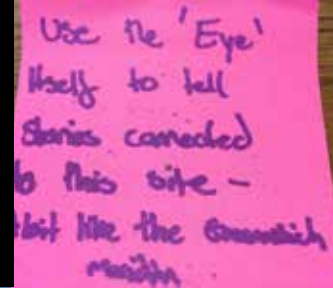 Use the 'Eye'
itself to tell
Stories connected
to this site -
A bit like the Greenwich
meridian